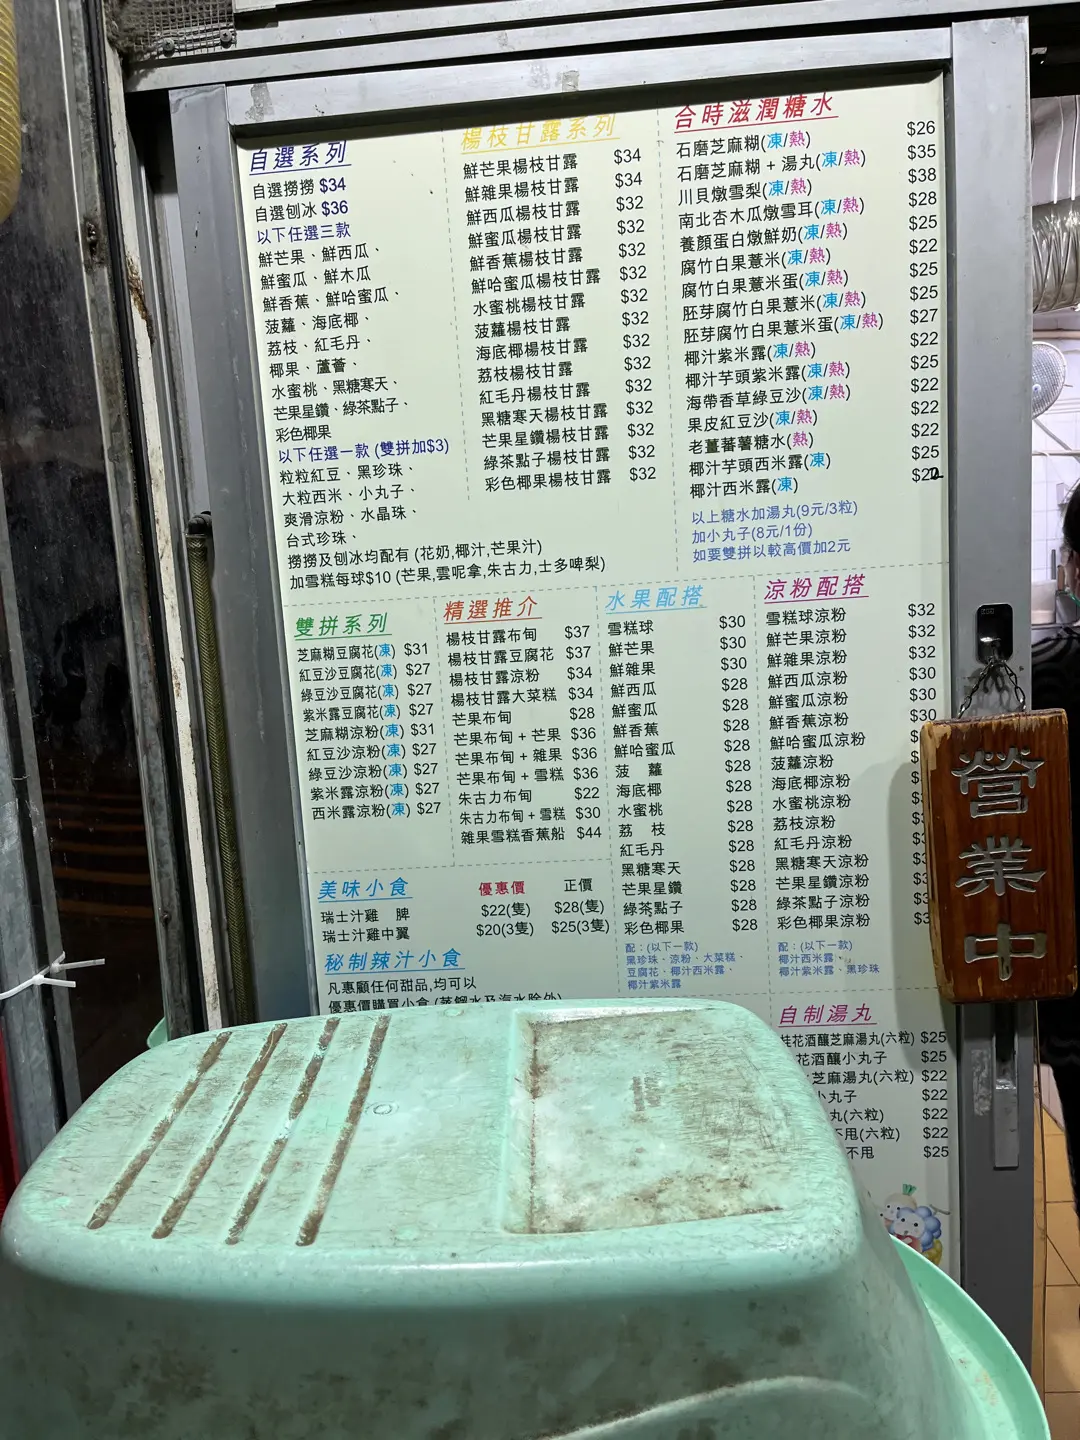 自選系列
自選撈撈 $34
自選刨冰 $36
以下任選三款
鮮芒果、鮮西瓜、
鮮蜜瓜、鮮木瓜
鮮香蕉、鮮哈蜜瓜、
菠蘿、海底椰、
荔枝、紅毛丹、
椰果、蘆薈、
水蜜桃、黑糖寒天、
芒果星鑽、綠茶點子、
彩色椰果
以下任選一款 (雙拼加$3)
粒粒紅豆、黑珍珠、
大粒西米、小丸子、
爽滑涼粉、水晶珠、
台式珍珠、
撈撈及刨冰均配有 (花奶,椰汁,芒果汁)
加雪糕每球$10 (芒果,雲呢拿,朱古力,士多啤梨)
楊枝甘露系列
鮮芒果楊枝甘露 $34
鮮雜果楊枝甘露 $34
鮮西瓜楊枝甘露 $32
鮮蜜瓜楊枝甘露 $32
鮮香蕉楊枝甘露 $32
鮮哈蜜瓜楊枝甘露 $32
水蜜桃楊枝甘露 $32
菠蘿楊枝甘露 $32
海底椰楊枝甘露 $32
荔枝楊枝甘露 $32
紅毛丹楊枝甘露 $32
黑糖寒天楊枝甘露 $32
芒果星鑽楊枝甘露 $32
綠茶點子楊枝甘露 $32
彩色椰果楊枝甘露 $32
合時滋潤糖水
石磨芝麻糊(凍/熱) $26
石磨芝麻糊 + 湯丸(凍/熱) $35
川貝燉雪梨(凍/熱) $38
南北杏木瓜燉雪耳(凍/熱) $28
養顏蛋白燉鮮奶(凍/熱) $25
腐竹白果薏米(凍/熱) $22
腐竹白果薏米蛋(凍/熱) $25
胚芽腐竹白果薏米(凍/熱) $25
胚芽腐竹白果薏米蛋(凍/熱) $27
椰汁紫米露(凍/熱) $22
椰汁芋頭紫米露(凍/熱) $25
海帶香草綠豆沙(凍/熱) $22
果皮紅豆沙(凍/熱) $22
老薑蕃薯糖水(熱) $22
椰汁芋頭西米露(凍) $25
椰汁西米露(凍) $22
以上糖水加湯丸(9元/3粒)
加小丸子(8元/1份)
如要雙拼以較高價加2元
雙拼系列
芝麻糊豆腐花(凍) $31
紅豆沙豆腐花(凍) $27
綠豆沙豆腐花(凍) $27
紫米露豆腐花(凍) $27
芝麻糊涼粉(凍) $31
紅豆沙涼粉(凍) $27
綠豆沙涼粉(凍) $27
紫米露涼粉(凍) $27
西米露涼粉(凍) $27
精選推介
楊枝甘露布甸 $37
楊枝甘露豆腐花 $37
楊枝甘露涼粉 $34
楊枝甘露大菜糕 $34
芒果布甸 $28
芒果布甸 + 芒果 $36
芒果布甸 + 雜果 $36
芒果布甸 + 雪糕 $36
朱古力布甸 $22
朱古力布甸 + 雪糕 $30
雜果雪糕香蕉船 $44
水果配搭
雪糕球 $30
鮮芒果 $30
鮮雜果 $30
鮮西瓜 $28
鮮蜜瓜 $28
鮮香蕉 $28
鮮哈蜜瓜 $28
菠 蘿 $28
海底椰 $28
水蜜桃 $28
荔 枝 $28
紅毛丹 $28
黑糖寒天 $28
芒果星鑽 $28
綠茶點子 $28
彩色椰果 $28
配：(以下一款)
黑珍珠、涼粉、大菜糕、
豆腐花、椰汁西米露、
椰汁紫米露
涼粉配搭
雪糕球涼粉 $32
鮮芒果涼粉 $32
鮮雜果涼粉 $32
鮮西瓜涼粉 $30
鮮蜜瓜涼粉 $30
鮮香蕉涼粉 $30
鮮哈蜜瓜涼粉
菠蘿涼粉
海底椰涼粉
水蜜桃涼粉
荔枝涼粉
紅毛丹涼粉
黑糖寒天涼粉
芒果星鑽涼粉
綠茶點子涼粉
彩色椰果涼粉
配：(以下一款)
椰汁西米露、
椰汁紫米露、黑珍珠
美味小食 優惠價 正價
瑞士汁雞 脾 $22(隻) $28(隻)
瑞士汁雞中翼 $20(3隻) $25(3隻)
秘制辣汁小食
凡惠顧任何甜品,均可以
優惠價購買小食 (蒸餾水及汽水除外)
自制湯丸
桂花酒釀芝麻湯丸(六粒) $25
花酒釀小丸子 $25
芝麻湯丸(六粒) $22
小丸子 $22
丸(六粒) $22
不甩(六粒) $22
不甩 $25
營業中